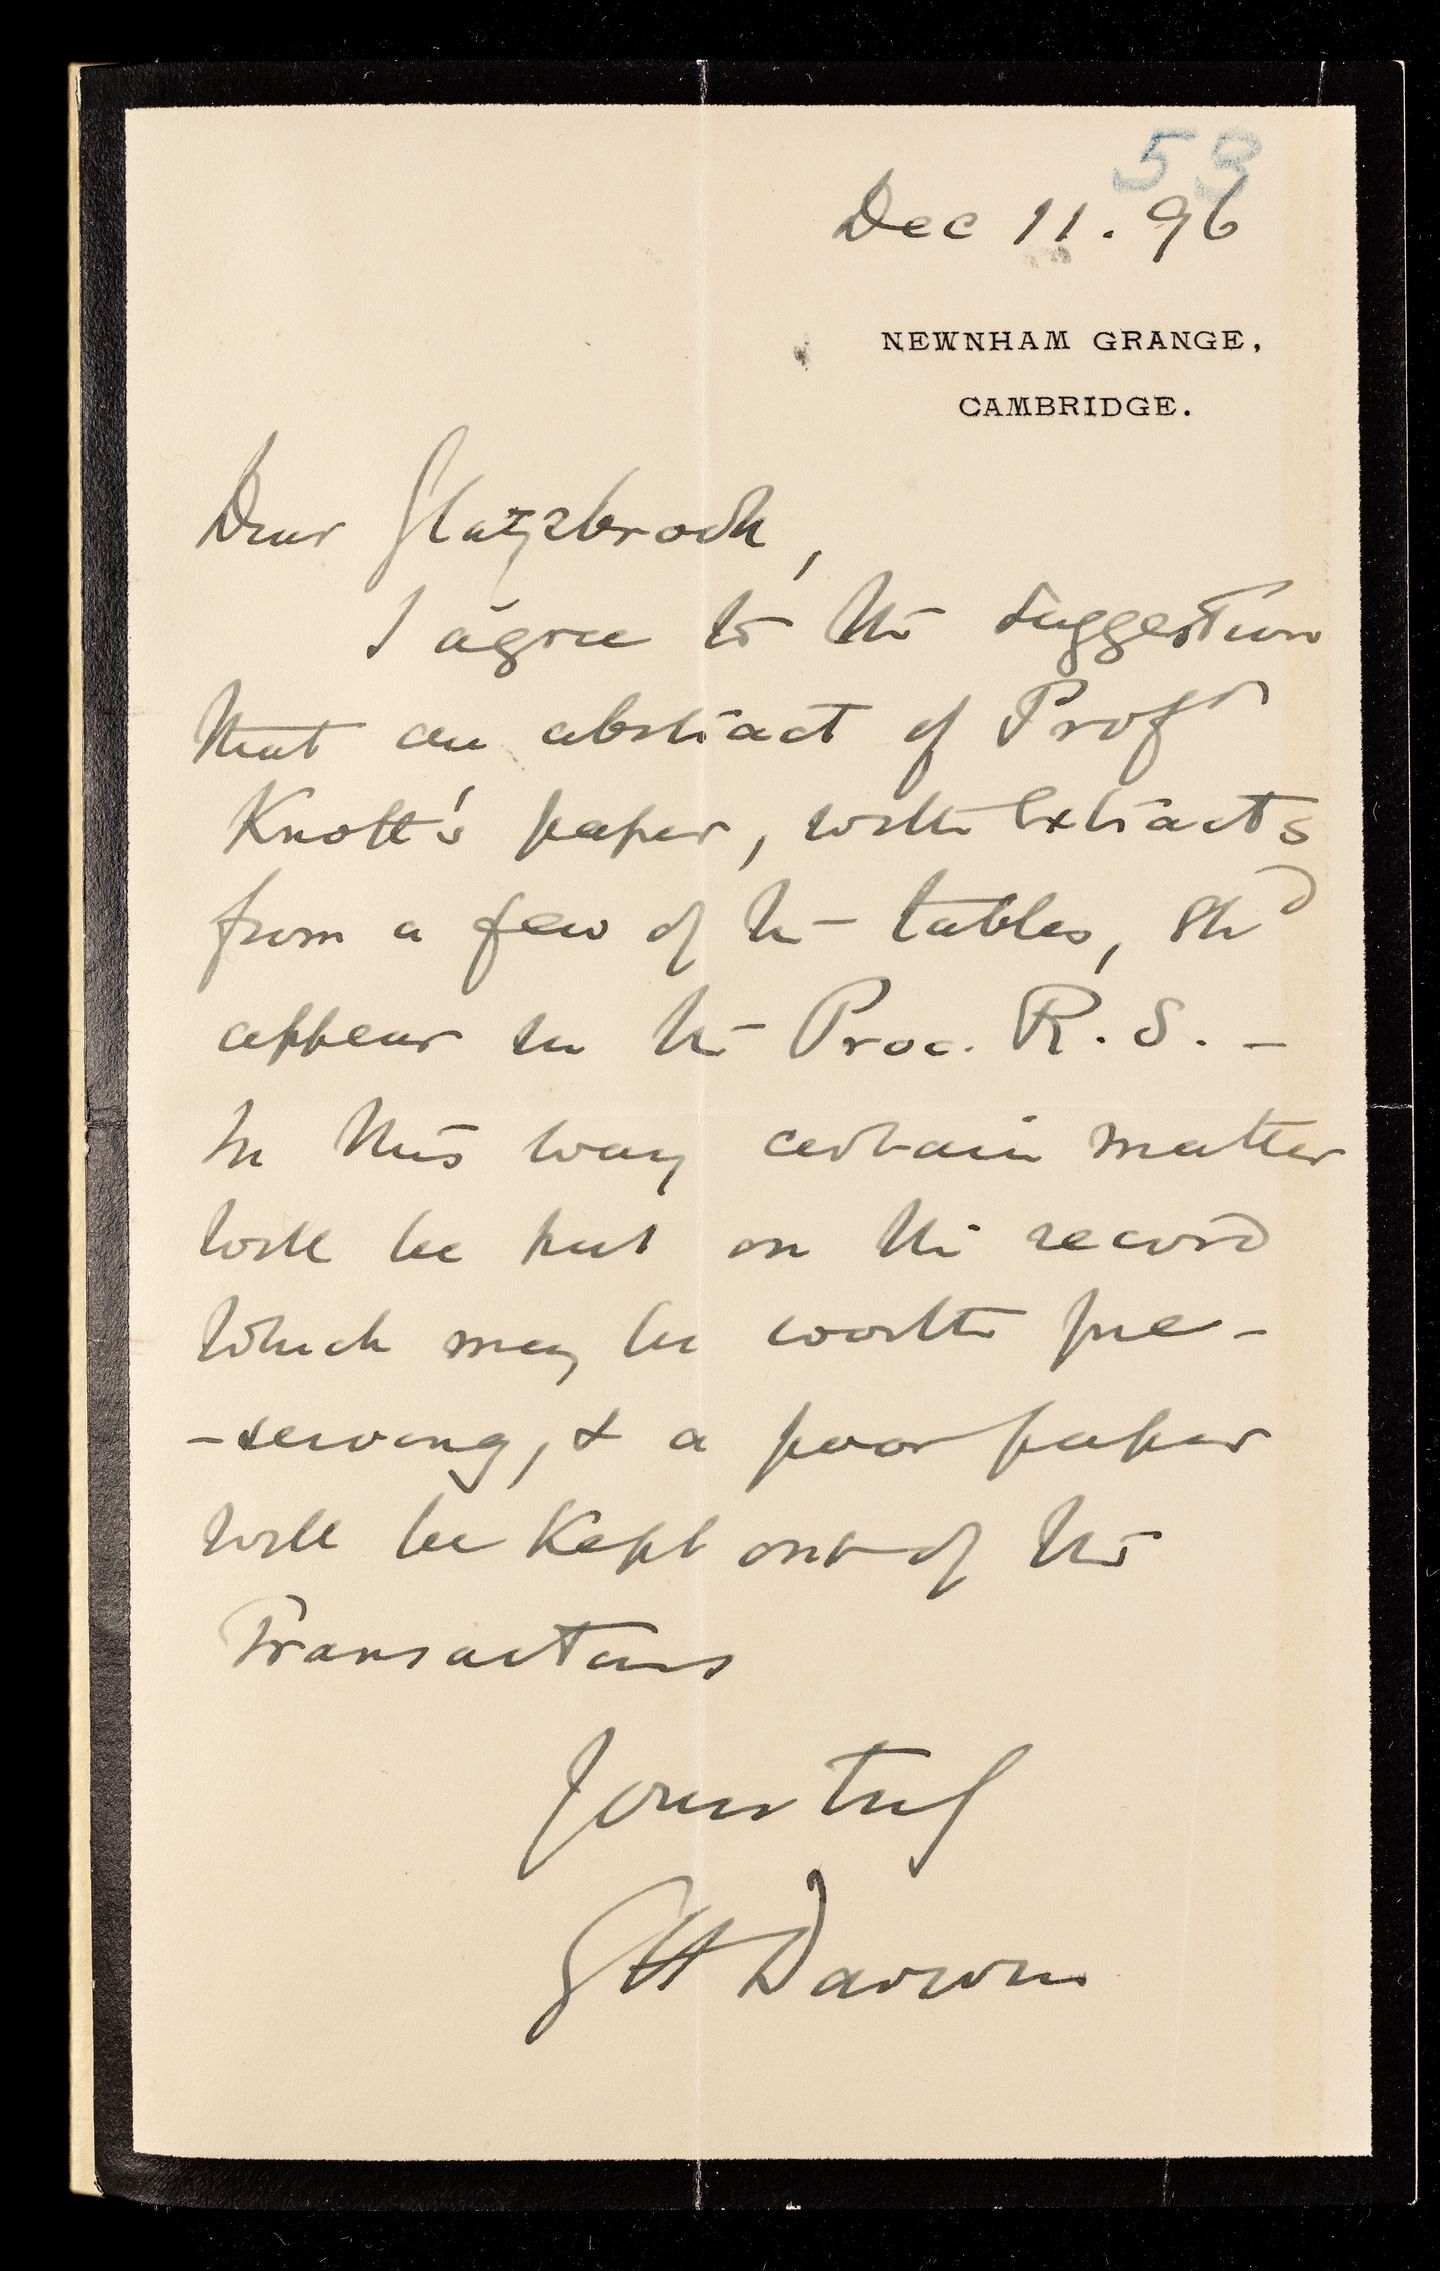 53
Dec 11. 96
NEWNHAM GRANGE,
CAMBRIDGE.
Dear Glazebrook,
I agree to the suggestion
that an abstract of Profr
Knott's paper, with extracts
from a few of the tables, shd
appear in the Proc. R. S. -
In this way certain matter
will be put on the record
which may be worth pre-
-serving, & a poor paper
will be kept out of the
Transactions
Yours truly
GHDarwin